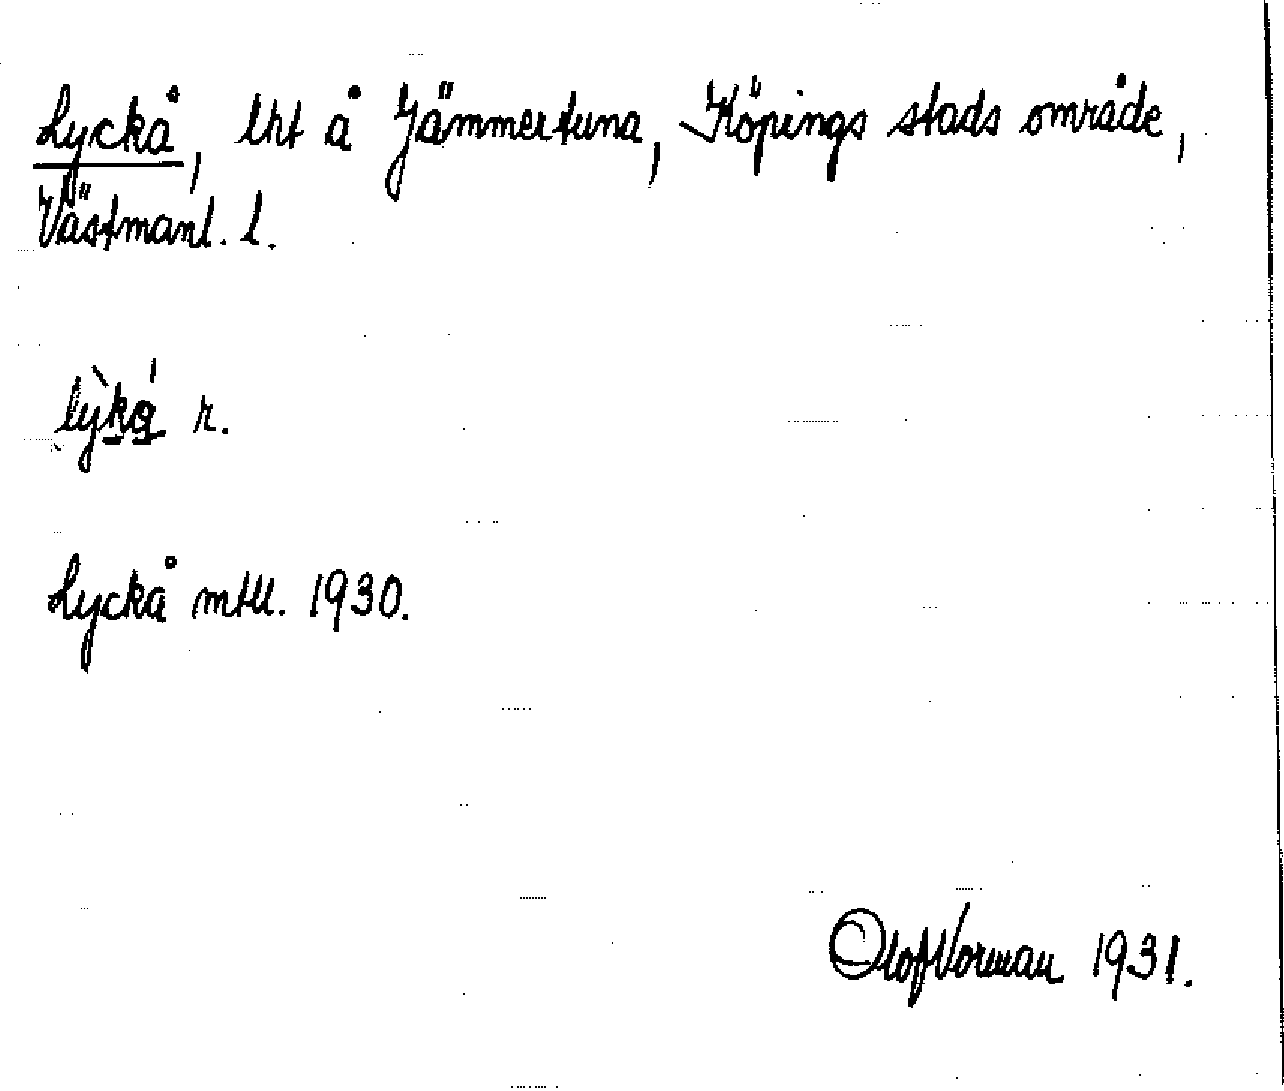 Lyckå, lht å Jämmertuna, Köpings stads område,
Västmanl. l.
r.
Lyckå mtll. 1930.
Olof Norman 1931.